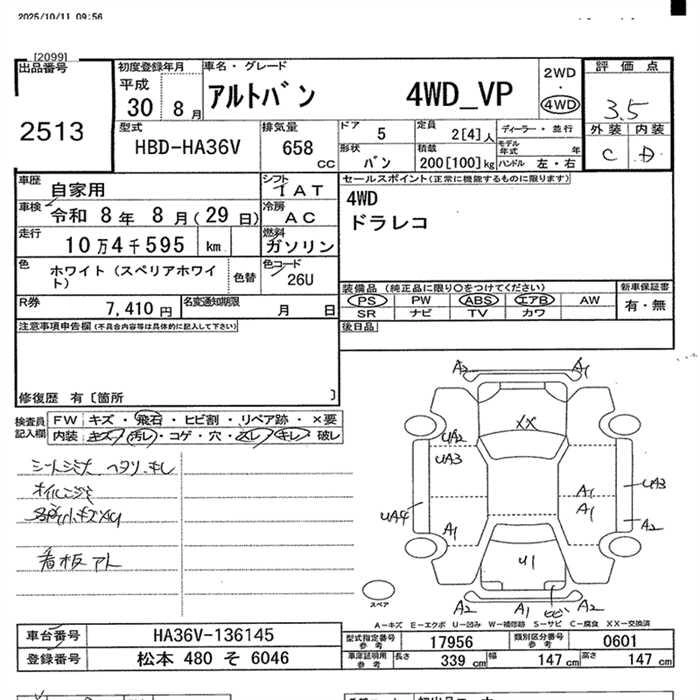 2025/10/11 09:56
[2099]
出品番号
2513
初度登録年月
平成
30 8 月
車名・グレード
アルトバン 4WD_VP
2WD
・
4WD
評価点
3.5
外装 内装
C D
型式
HBD-HA36V
排気量
658 cc
ドア 5
形状 バン
定員 2[4]人
積載 200[100]kg
ディーラー・並行
モデル年式 年
ハンドル 左・右
車歴 自家用
車検 令和 8 年 8 月(29 日)
走行 10万4千595 km
色 ホワイト(スペリアホワイト)
色替
シフト IAT
冷房 AC
燃料 ガソリン
色コード 26U
R券 7,410 円
名変通知期限 月 日
セールスポイント(正常に機能するものに限ります)
4WD
ドラレコ
装備品(純正品に限り○をつけてください)
PS PW ABS エアB AW
SR ナビ TV カワ
新車保証書
有・無
後日品
注意事項申告欄(不具合内容等は具体的に記入して下さい)
修復歴 有〔箇所 〕
検査員記入欄
FW キズ・飛石・ヒビ割・リペア跡・×要
内装 キズ・汚レ・コゲ・穴・スレ・キレ・破レ
看板アト
A2 A1
XX
UA2
UA3
UA4
A1
A1
A1
UA3
A2
U1
A2 A1 ヒビ A2
スペア
A-キズ E-エクボ U-凹み W-補修跡 S-サビ C-腐食 XX-交換済
車台番号 HA36V-136145
登録番号 松本 480 そ 6046
型式指定番号 参考 17956
類別区分番号 参考 0601
車庫証明用 参考 長さ 339 cm 幅 147 cm 高さ 147 cm